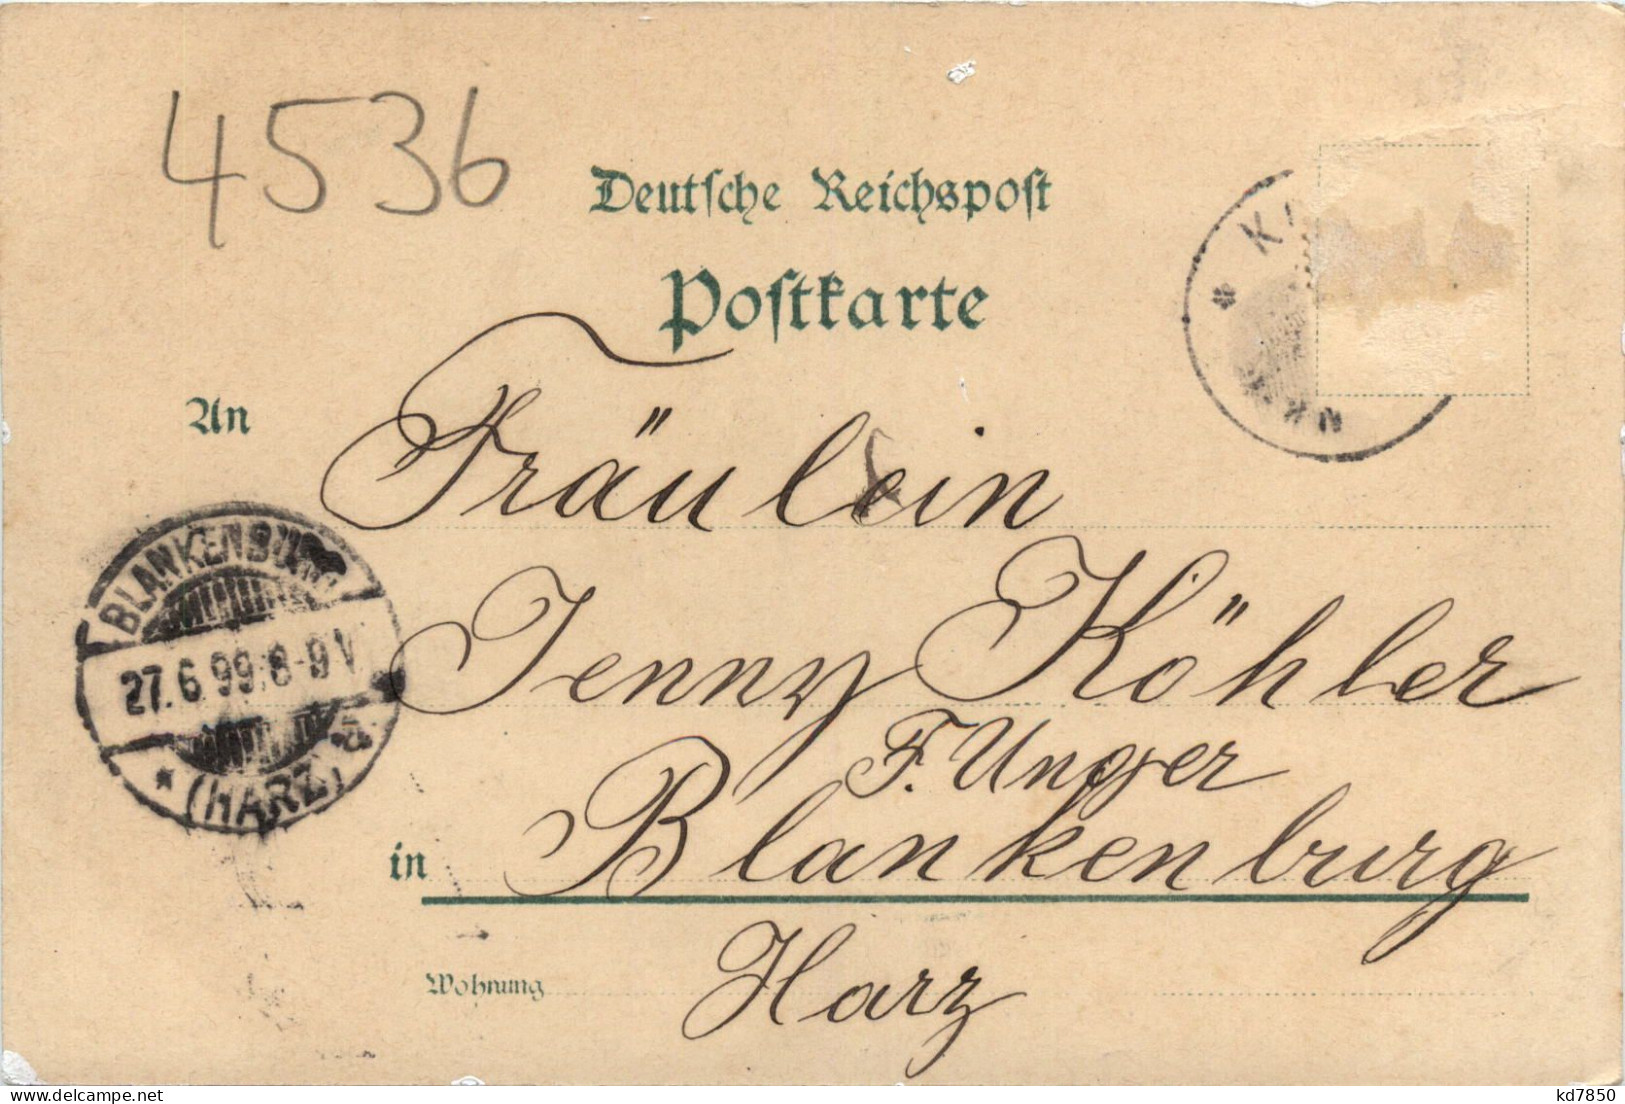 4536
Deutsche Reichspost
Postkarte
An
Fräulein
Jenny Köhler
F. Unger
in Blankenburg
Harz
Wohnung
BLANKENBURG
27.6.99.8-9V.
* (HARZ) a.
kd7850